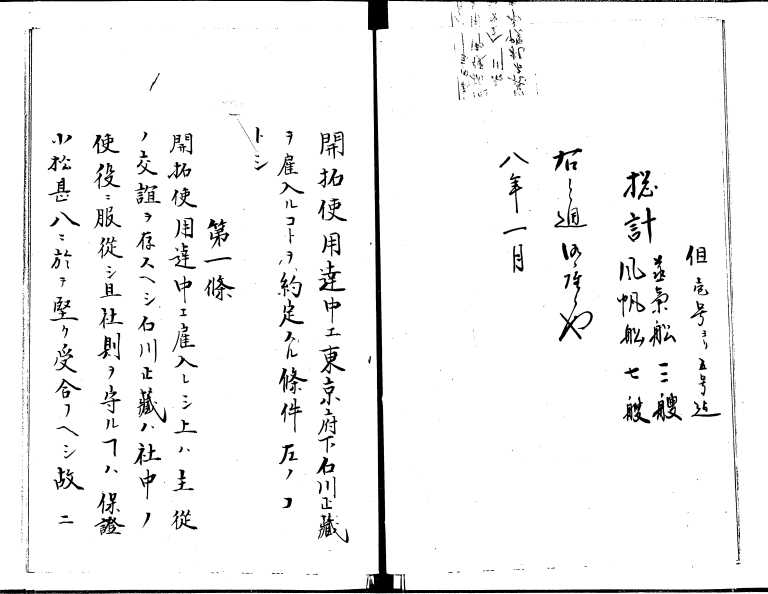 但壱号ヨリ五号迄
蒸気船三艘
風帆船七艘
総計
右之通御座候也
八年一月
開拓使用達中エ東京府下石川正蔵
ヲ雇入ルコトヲ約定スル條件左ノコ
トシ
第一條
開拓使用達中エ雇入レシ上ハ主従
ノ交誼ヲ存スヘシ石川正蔵ハ社中ノ
使役ニ服従シ且社則ヲ守ルヿハ保證
小松甚八ニ於テ堅ク受合フヘシ故ニ